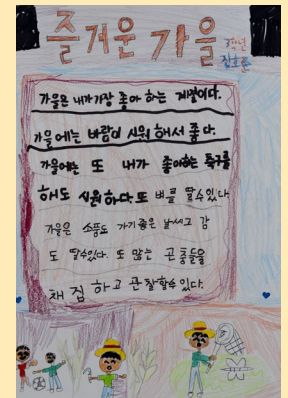 즐거운 가을
3학년
가을은 내가 가장 좋아 하는 계절이다.
가을 에는 바람이 시원 해서 좋다.
가을에는 또 내가 좋아하는 축구를
해도 시원 하다. 또 벼를 딸수있다.
가을은 소풍도 가기 좋은 날씨고 감
도 딸수있다. 또 많는 곤충들을
채집 하고 관찰할수 있다.